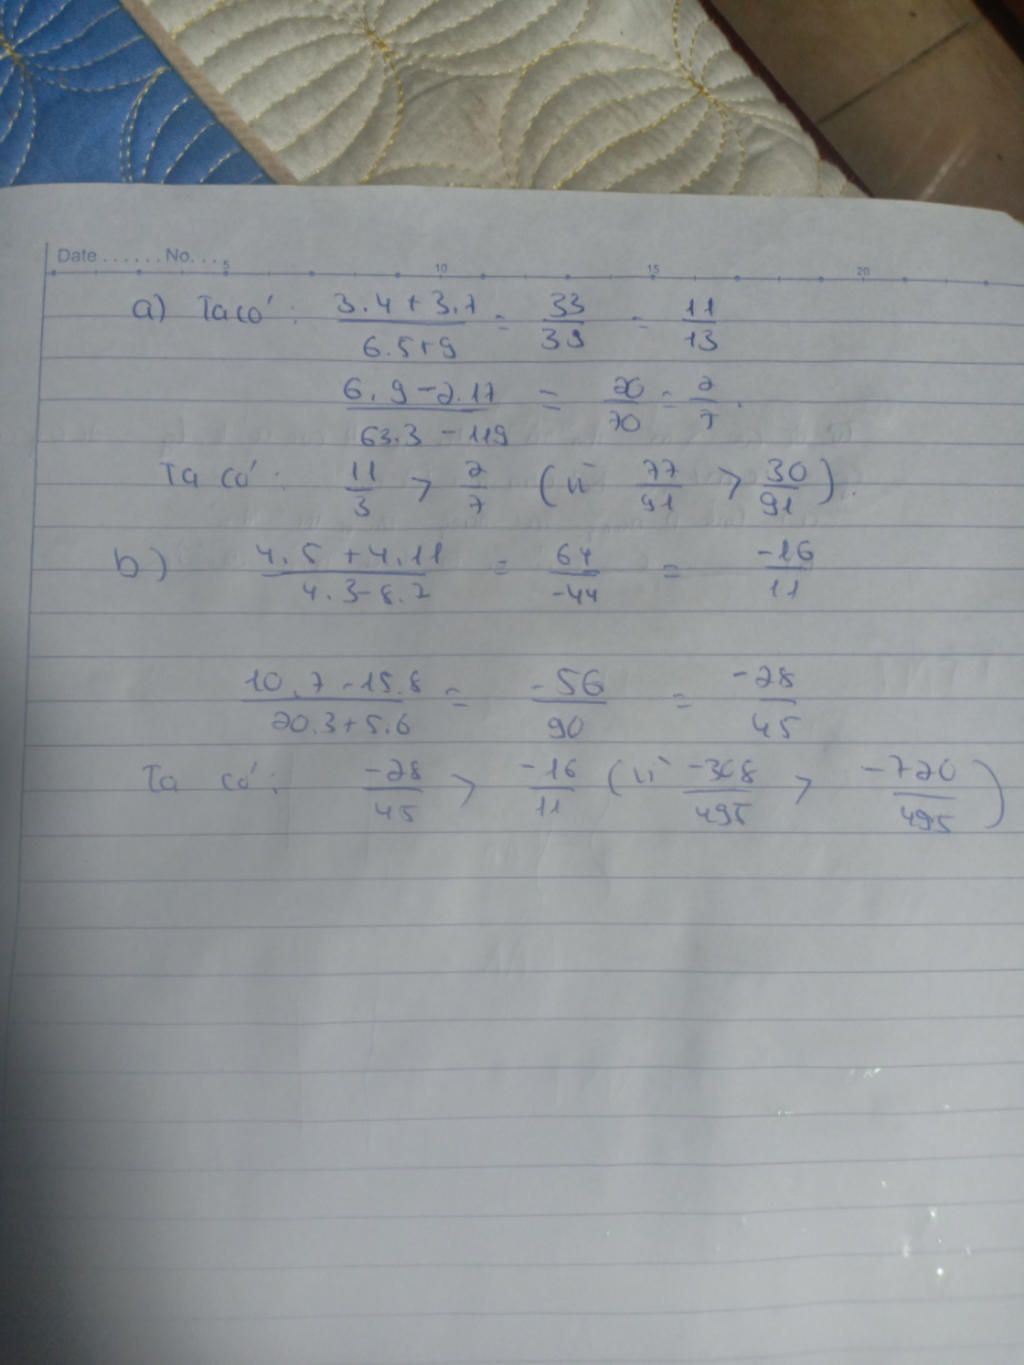 Date ...... No. ... 5 10 15 20
a) Ta có: (3.4 + 3.7)/(6.5+9) = 33/39 = 11/13
(6.9 - 2.17)/(63.3 - 119) = 20/70 = 2/7.
Ta có: 11/3 > 2/7 (vì 77/91 > 30/91).
b) (4.5 + 4.11)/(4.3-8.7) = 64/-44 = -16/11
(10.7 - 15.8)/(20.3+5.6) = -56/90 = -28/45
Ta có: -28/45 > -16/11 (vì -308/495 > -720/495)